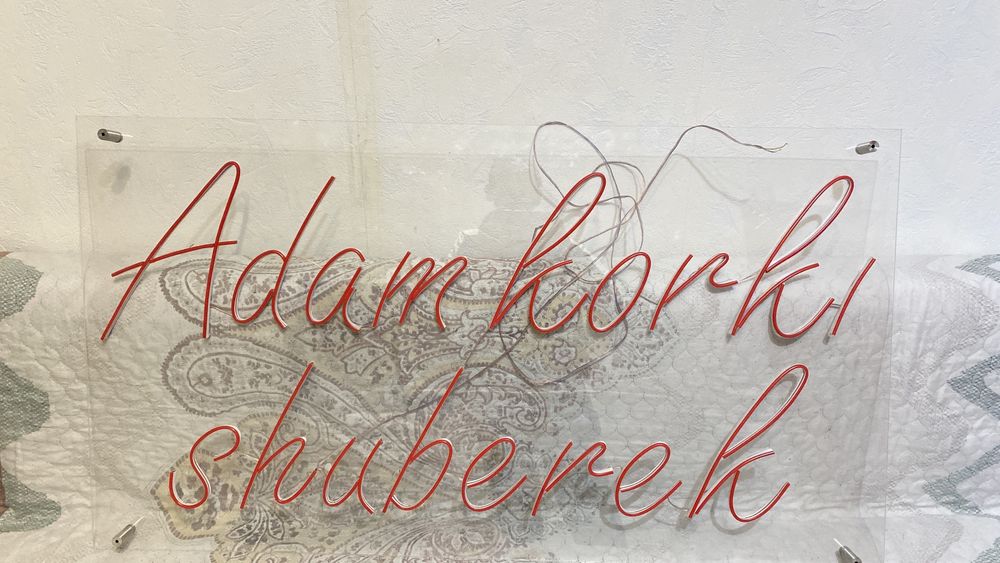 Adam korkı
shuberek